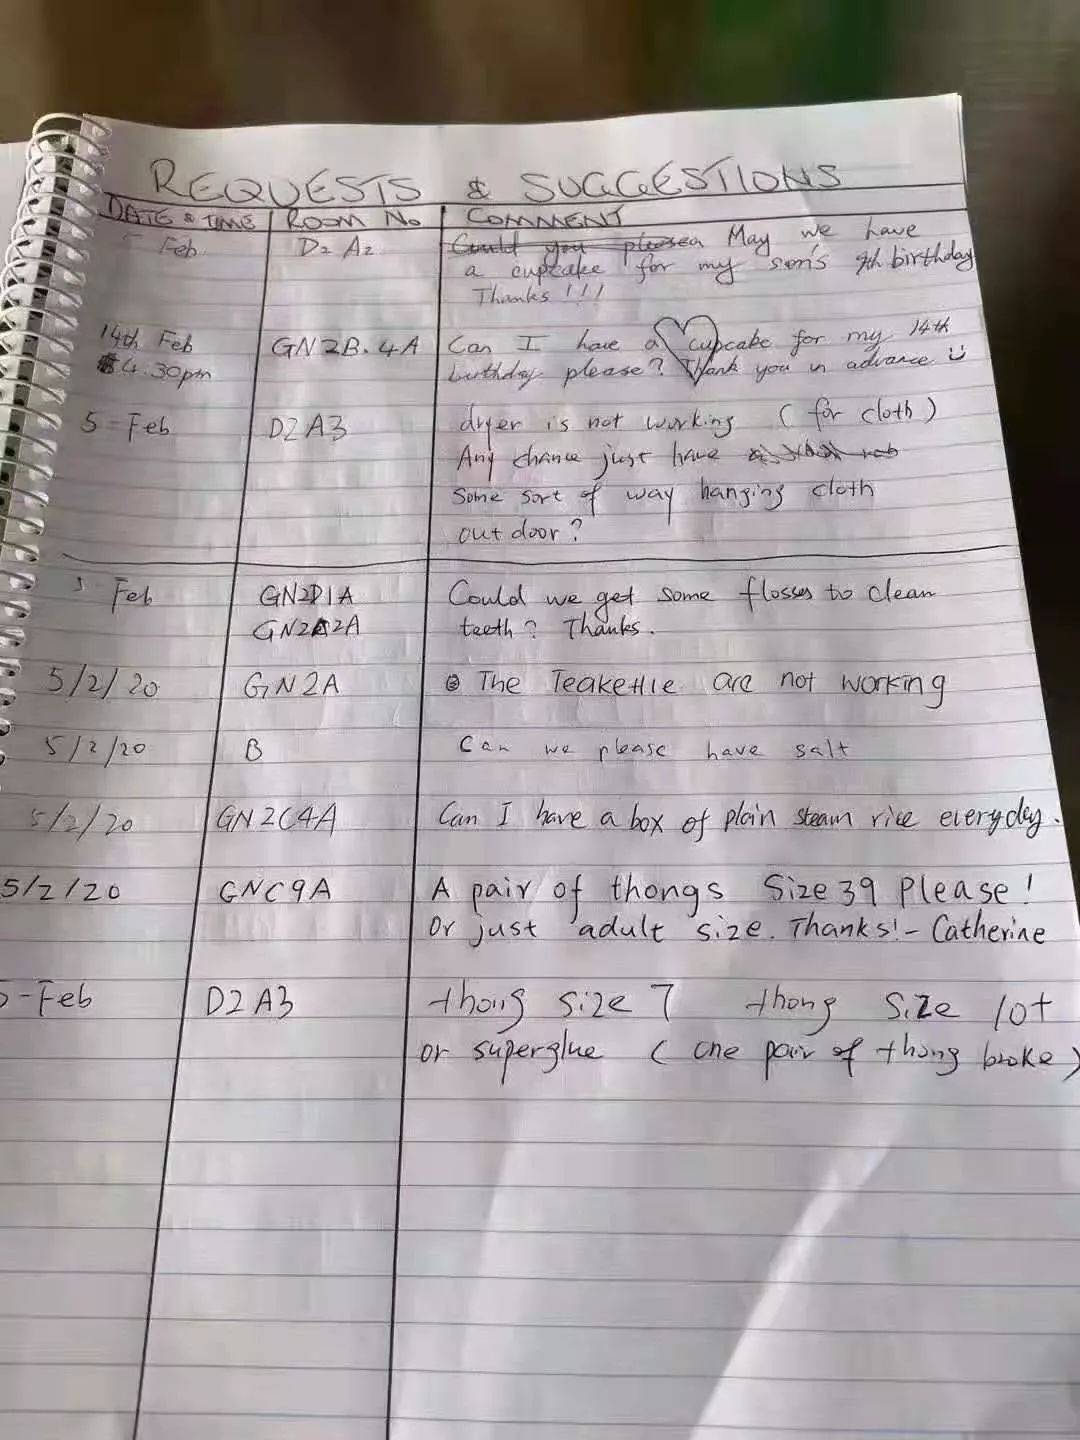 REQUESTS & SUGGESTIONS
DATE & TIME ROOM No COMMENT
5 Feb D2 A2 May we have
a cupcake for my son's 9th birthday
Thanks!!!
14th Feb GN2B.4A Can I have a cupcake for my 14th
4.30pm birthday please? Thank you in advance
5-Feb D2A3 dryer is not working (for cloth)
Any chance just have
Some sort of way hanging cloth
out door?
5 Feb GN2D1A Could we get some flosses to clean
GN2A2A teeth? Thanks.
5/2/20 GN2A The Teakettle are not working
5/2/20 B Can we please have salt
5/2/20 GN2C4A Can I have a box of plain steam rice everyday.
5/2/20 GNC9A A pair of thongs Size 39 Please!
Or just adult size. Thanks! - Catherine
5-Feb D2A3 thong size 7 thong size 10+
or superglue (one pair of thong broke)